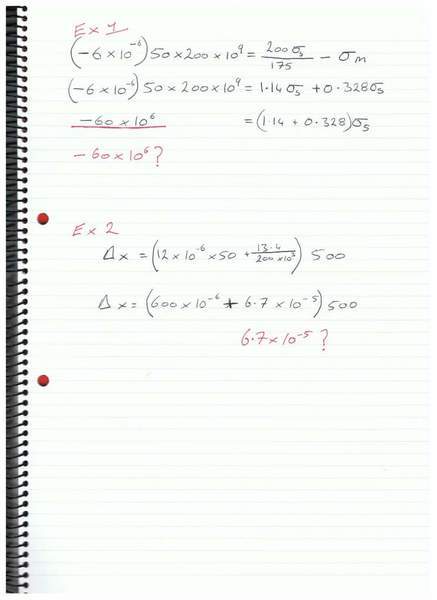 Ex 1
(-6 × 10⁻⁶) 50 × 200 × 10⁹ = 200σₛ/175 - σₘ
(-6 × 10⁻⁶) 50 × 200 × 10⁹ = 1.14σₛ + 0.328σₛ
-60 × 10⁶ = (1.14 + 0.328)σₛ
-60 × 10⁶ ?
Ex 2
Δx = (12 × 10⁻⁶ × 50 + 13.4/200 × 10³) 500
Δx = (600 × 10⁻⁶ + 6.7 × 10⁻⁵) 500
6.7 × 10⁻⁵ ?